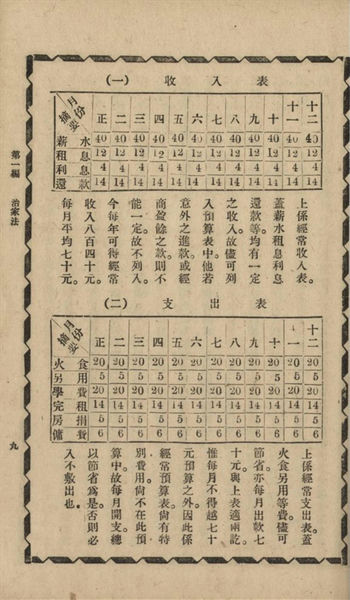 (一) 收入表
月份 摘要 正 二 三 四 五 六 七 八 九 十 十一 十二
薪水 40 40 40 40 40 40 40 40 40 40 40 40
租息 12 12 12 12 12 12 12 12 12 12 12 12
利息 4 4 4 4 4 4 4 4 4 4 4 4
還款 14 14 14 14 14 14 14 14 14 14 14 14
上係經常收入表。
蓋薪水租息利息
還款等均有一定
之收入故儘可列
入預算表中。他若
意外之進款或經
商盈餘之款則不
能一定故不列入。
今每年可得經常
收入八百四十元。
每月平均七十元。
(二) 支出表
月份 摘要 正 二 三 四 五 六 七 八 九 十 十一 十二
火食 20 20 20 20 20 20 20 20 20 20 20 20
另用 5 5 5 5 5 5 5 5 5 5 5 5
學費 20 20 20 20 20 20 20 20 20 20 20 20
完租 14 14 14 14 14 14 14 14 14 14 14 14
房捐 5 5 5 5 5 5 5 5 5 5 5 5
傭費 6 6 6 6 6 6 6 6 6 6 6 6
上係經常支出表。蓋
火食另用等費儘可
節省。亦每月出款七
十元。與上表適兩訖
惟每月不得越七十
元預算之外。因此係
經常預算表尙有特
別費用尙不在此預
算中。故每月開支總
以節省為是。否則必
入不敷出也。
第一編 治家法
九